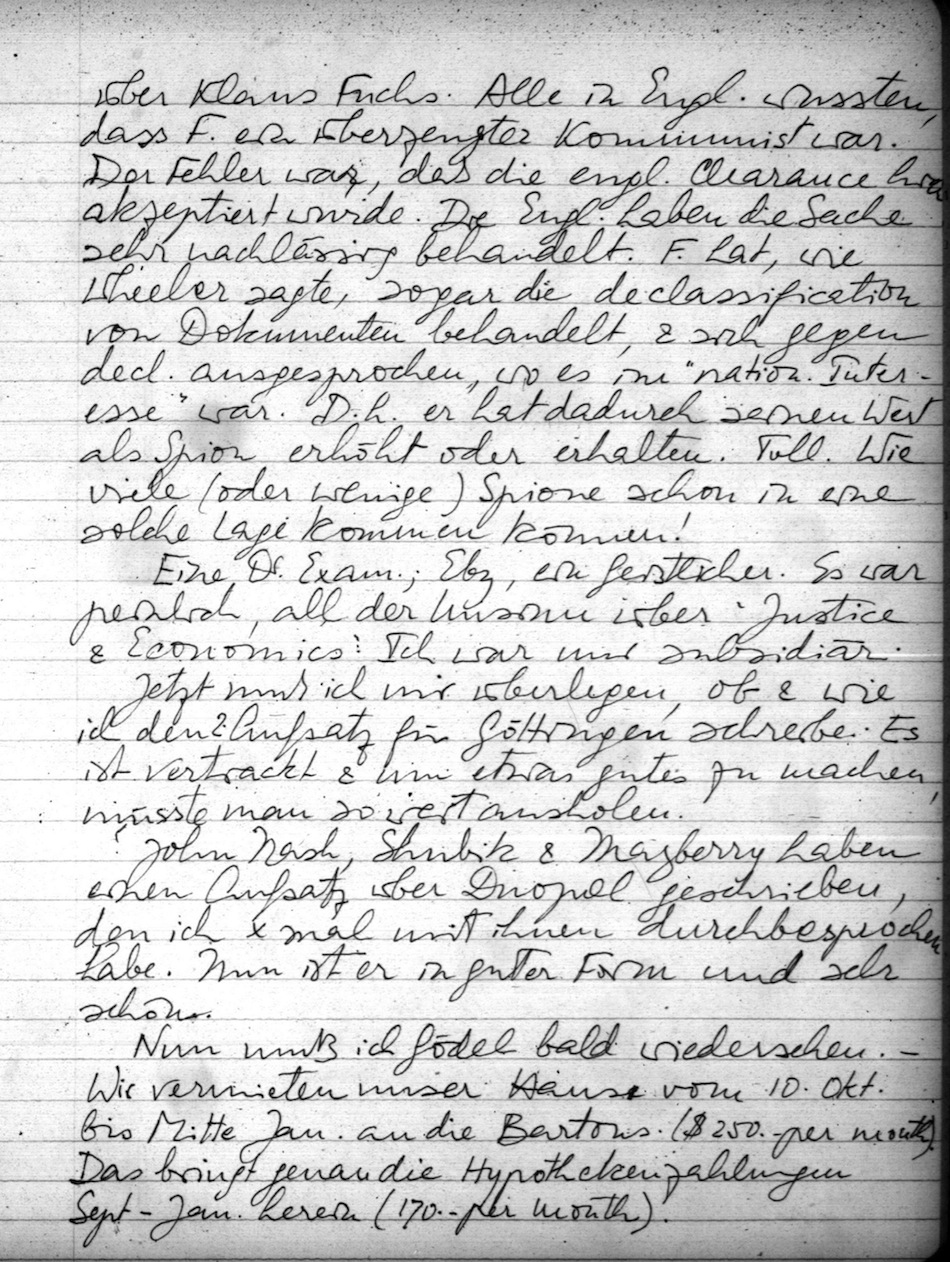 über Klaus Fuchs. Alle in Engl. wussten,
dass F. ein überzeugter Kommunist war.
Der Fehler war, dass die engl. Clearance hier
akzeptiert wurde. Die Engl. haben die Sache
sehr nachlässig behandelt. F. hat, wie
Wheeler sagte, sogar die declassification
von Dokumenten behandelt, & sich gegen
decl. ausgesprochen, wo es im "nation. Inter-
esse" war. D.h. er hat dadurch seinen Wert
als Spion erhöht oder erhalten. Toll. Wie
viele (oder wenige) Spione schon in eine
solche Lage kommen können!
Eine Dr. Exam.; Eby, ein Geistlicher. Es war
peinlich, all der Unsinn über "Justice
& Economics". Ich war nur subsidiär.
Jetzt muß ich mir überlegen, ob & wie
ich den 2. Aufsatz für Göttingen schreibe. Es
ist vertrackt & um etwas gutes zu machen,
müsste man so weit ausholen.
John Nash, Shubik & Mayberry haben
einen Aufsatz über Duopol geschrieben,
den ich x mal mit ihnen durchbesprochen
habe. Nun ist er in guter Form und sehr
schön.
Nun muß ich Gödel bald wiedersehen. –
Wir vermieten unser Haus vom 10. Okt.
bis Mitte Jan. an die Bartons. ($250.- per month).
Das bringt genau die Hypothekenzahlungen
Sept – Jan. herein (170.- per month).